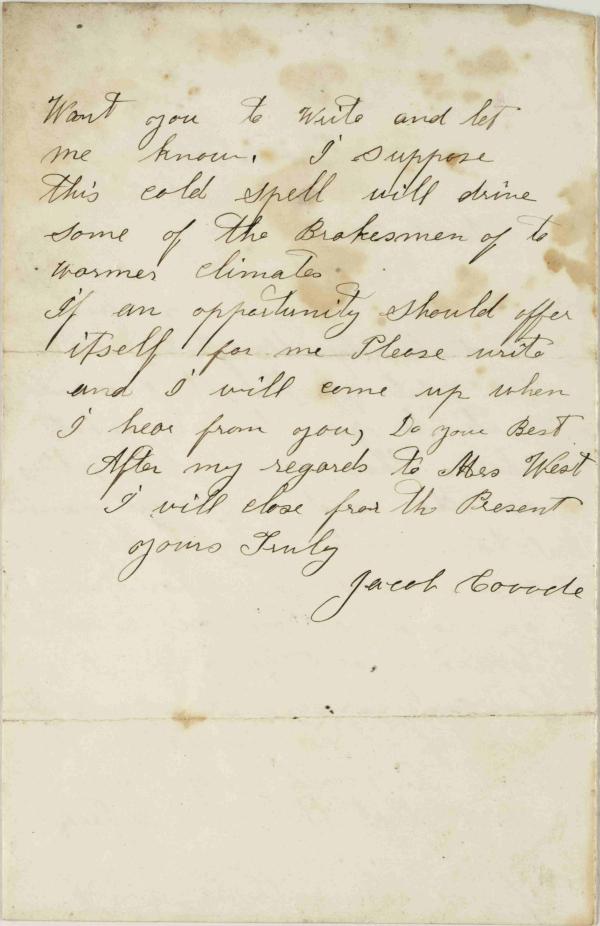 Want you to Write and let
me know. I suppose
this cold spell will drive
some of the Brakesmen of to
warmer climates
If an opportunity should offer
itself for me Please write
and I will come up when
I hear from you, Do your Best
After my regards to Mrs West
I will close for the Present
yours Truly
Jacob Covode